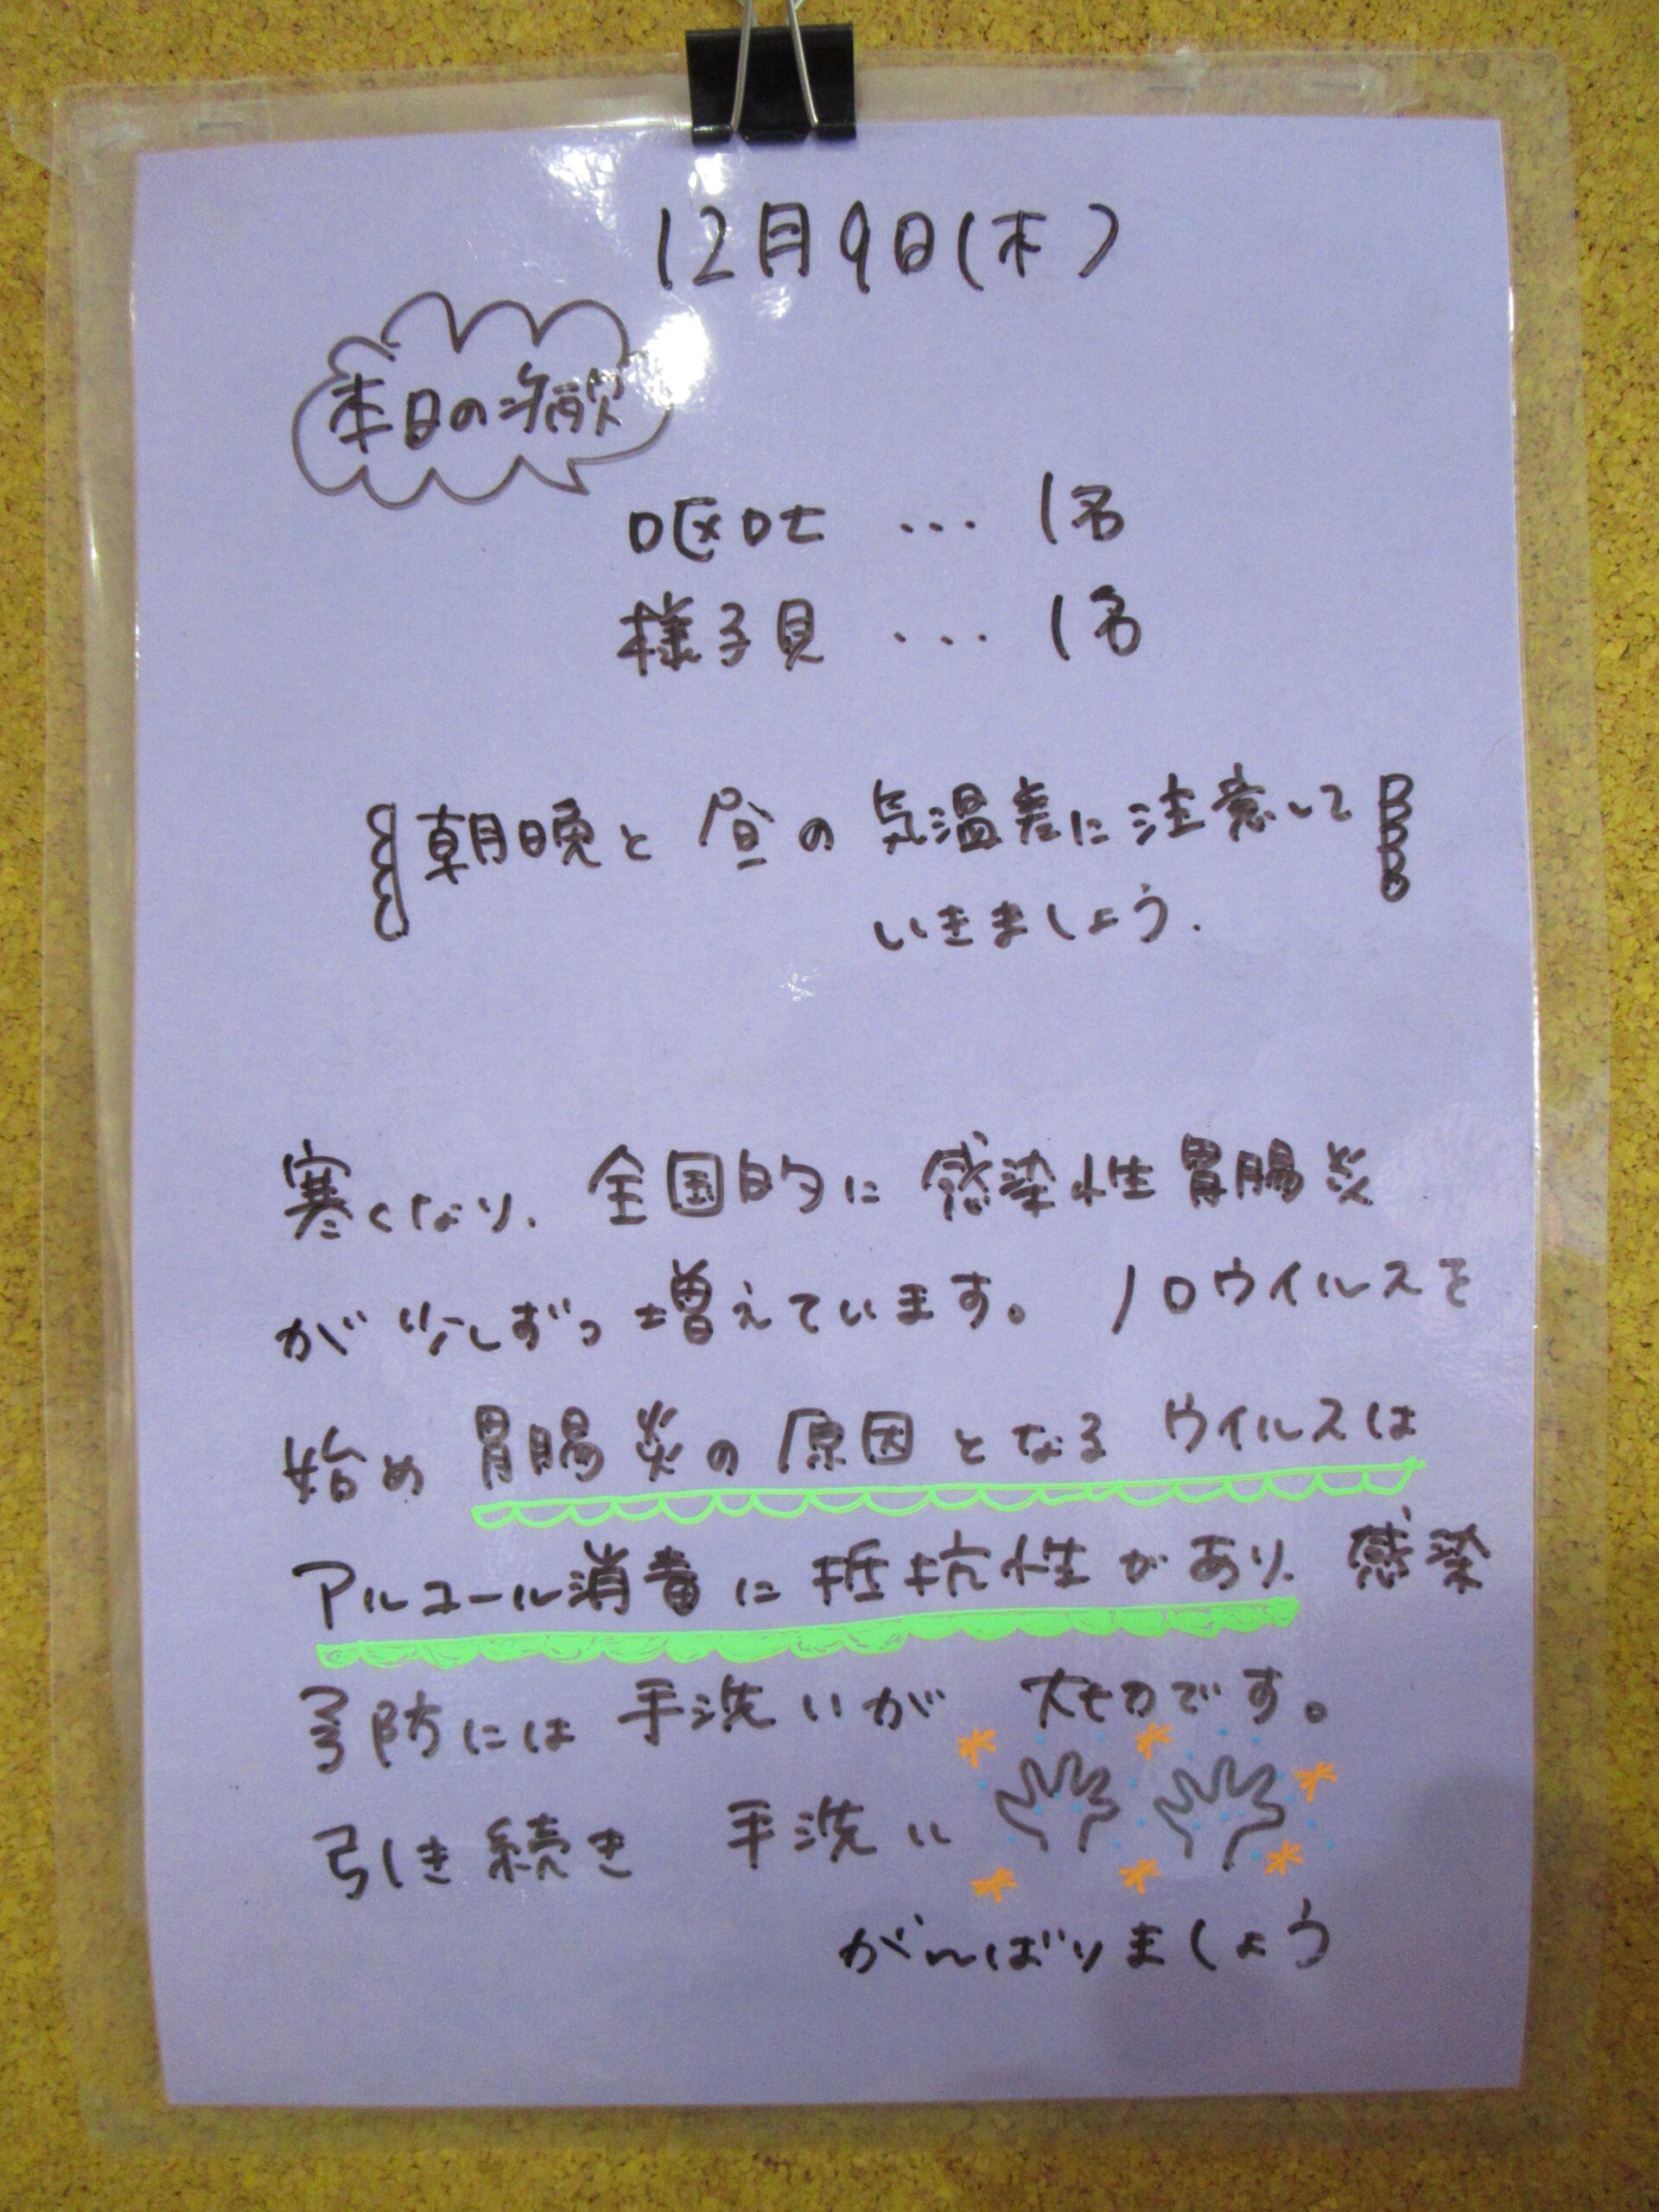 12月9日(木)
本日の病欠
呕吐 … 1名
様子見 … 1名
朝晩と昼の気温差に注意して
いきましょう.
寒くなり、全国的に感染性胃腸炎
が少しずつ増えています。ノロウイルスを
始め胃腸炎の原因となるウイルスは
アルコール消毒に抵抗性があり、感染
予防には手洗いが大切です。
引き続き手洗い
がんばりましょう